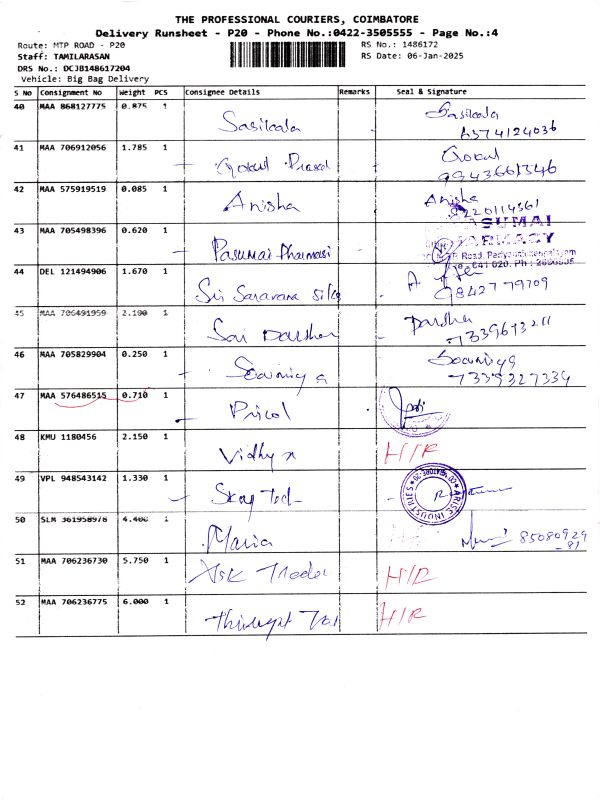 THE PROFESSIONAL COURIERS, COIMBATORE
Delivery Runsheet - P20 - Phone No.:0422-3505555 - Page No.:4
Route: MTP ROAD - P20 RS No.: 1486172
Staff: TAMILARASAN RS Date: 06-Jan-2025
DRS No.: DCJB148617204
Vehicle: Big Bag Delivery
S No Consignment No Weight PCS Consignee Details Remarks Seal & Signature
40 MAA 868127775 0.875 1 Sasikala Sasikala
6374124036
41 MAA 706912056 1.785 1 Gokul Prasad Gokul
9943661346
42 MAA 575919519 0.085 1 Anisha Anisha
9220114361
43 MAA 705498396 0.620 1 Pasumai Pharmasi
44 DEL 121494906 1.670 1 Sri Saravana silks
9842779709
45 MAA 706491959 2.100 1 Sai Darshan Darsha
7339673211
46 MAA 705829904 0.250 1 Sowmiya Sowmiya
7339327334
47 MAA 576486515 0.710 1 Pricol
48 KMU 1180456 2.150 1 Vidhya H/R
49 VPL 948543142 1.330 1 ARISE INDUSTRIES
50 SLM 361958978 4.400 1 Maria 85080929
-81
51 MAA 706236730 5.750 1 Ask Trader H/R
52 MAA 706236775 6.000 1 H/R